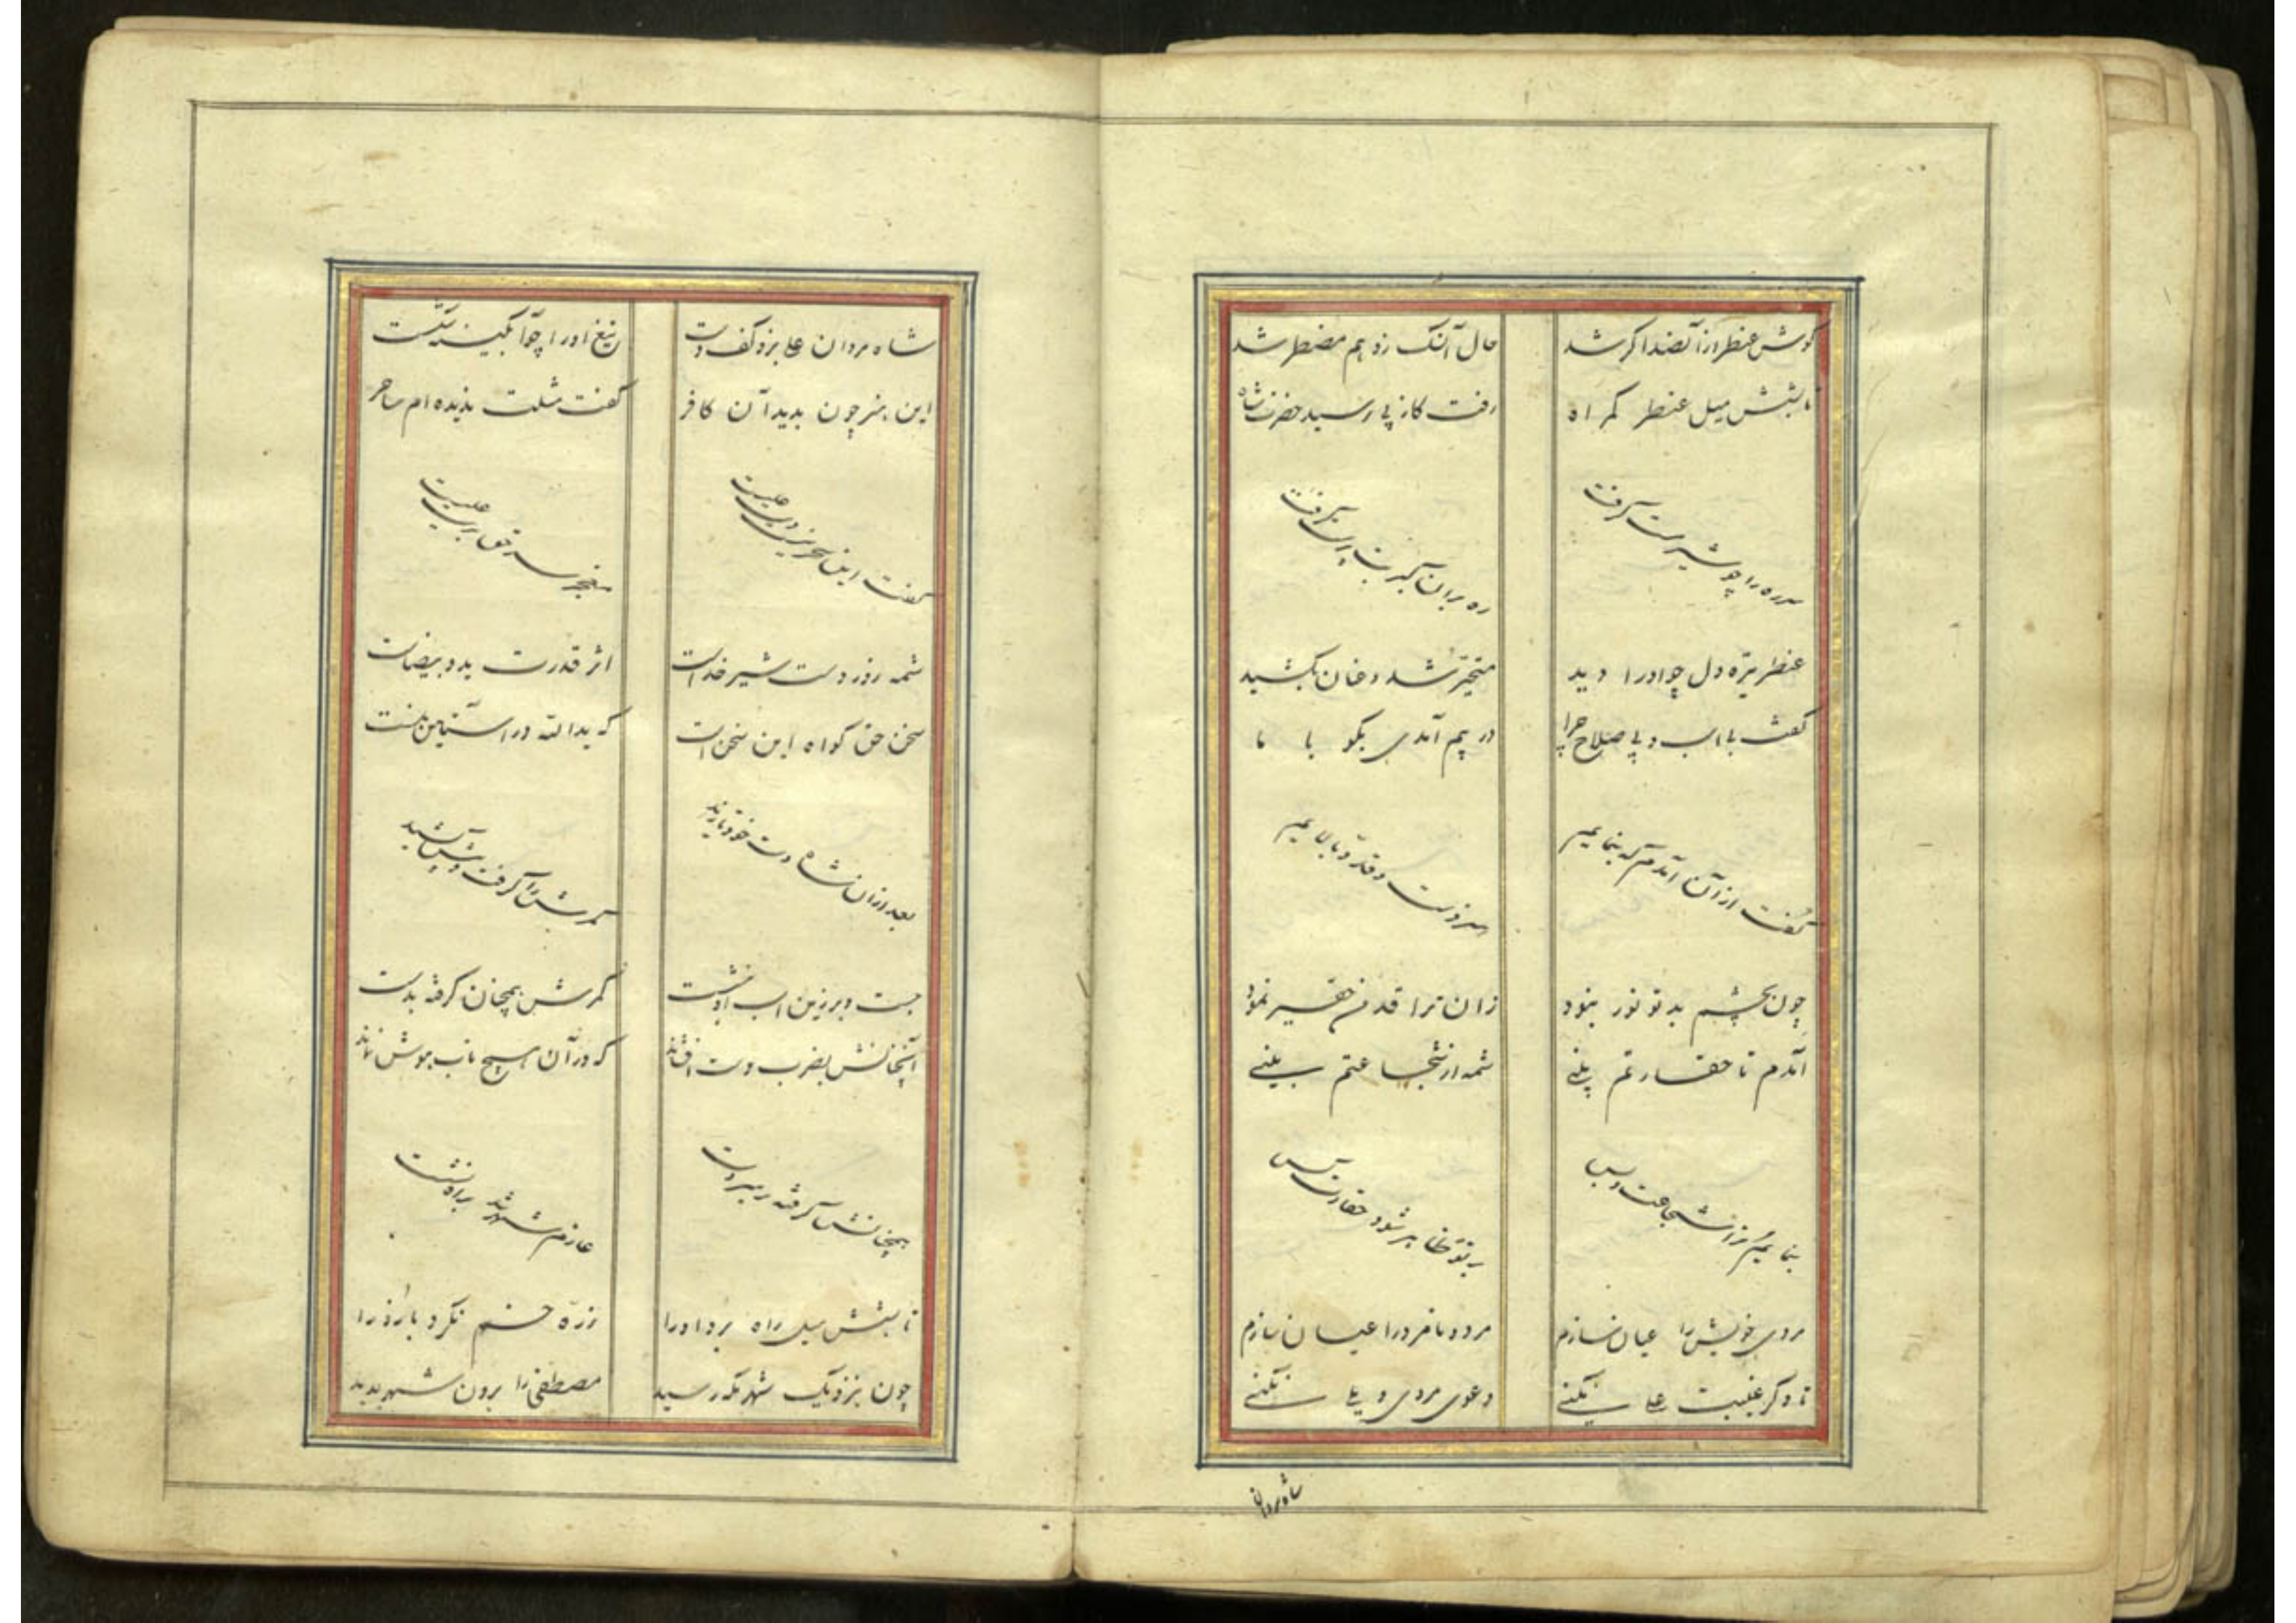 گوش عنطر از آن صدا کر شد حال آنک زد بهم مضطر شد
تا بشش میل عنطر گمراه رفت کز پی رسید حضرت شاه
سر ره را چو شیر مست گرفت ره بران گبر بت پرست گرفت
عنطر تیره دل چو او را دید متحیر شد و عنان بکشید
گفت با اسب و بی صلاح چرا در پیم آمدی بگو با ما
گفت از آن آمدم که بنمایم سر و دست و قد و بالایم
چون بچشم بد تو نور نبود زان ترا قد من حقیر نمود
آمدم تا حقارتم بینی شمه از شجاعتم بینی
بنمایم ترا شجاعت و بس بر تو ظاهر شود حقارت پس
مردی خویش را عیان سازم مرد و نامرد را عیان سازم
تا دگر غیبت علی نکنی دعوی مردی و یلی نکنی
شاه مردان
شاه مردان علی بزد کف دست تیغ او را چو آبگینه شکست
این هنر چون بدید آن کافر گفت مثلت ندیده ام ساحر
گفت این سحر نیست دین علیست معجز سر حق برین علیست
شمه زور دست شیر خداست اثر قدرت ید و بیضاست
سخن حق گواه این سخن است که یدالله در آستین منست
بعد از آن شاه دست خود یازید کمرش را گرفت و پیش کشید
جست و بر زین اسب او بنشست کمرش همچنان گرفته بدست
آنچنانش بضرب دست افشاند که در آن هیچ تاب و هوش نماند
همچنانش گرفته بر سر دست عازم شهر شد براه نشست
تا بشش میل راه برد او را ذره خم نکرد بازو را
چون بنزدیک شهر مکه رسید مصطفی را برون شهر بدید